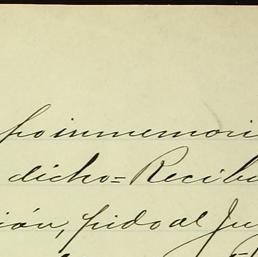 po inmemori
dicho=Recibi
ión, pido al Ju